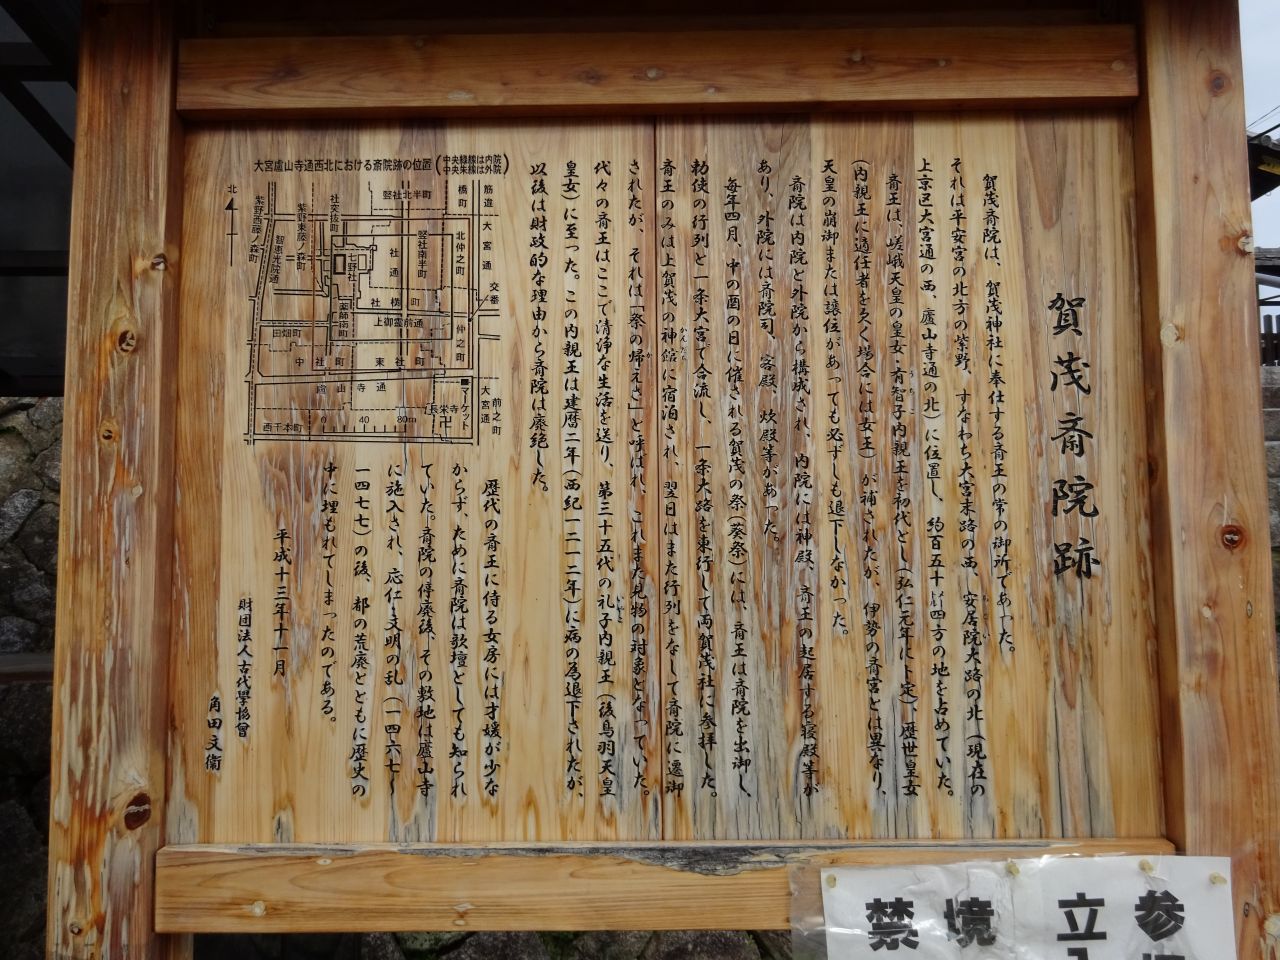 賀茂斎院跡
賀茂斎院は、賀茂神社に奉仕する斎王の常の御所であった。
それは平安宮の北方の紫野、すなわち大宮末路の西、安居院大路の北(現在の
上京区大宮通の西、廬山寺通の北)に位置し、約百五十㍍四方の地を占めていた。
斎王は、嵯峨天皇の皇女・有智子内親王を初代とし(弘仁元年に卜定)、歴世皇女
(内親王に適任者を欠く場合には女王)が補されたが、伊勢の斎宮とは異なり、
天皇の崩御または譲位があっても必ずしも退下しなかった。
斎院は内院と外院から構成され、内院には神殿、斎王の起居する寝殿等が
あり、外院には斎院司、客殿、炊殿等があった。
毎年四月、中の酉の日に催される賀茂の祭(葵祭)には、斎王は斎院を出御し、
勅使の行列と一条大宮で合流し、一条大路を東行して両賀茂社に参拝した。
斎王のみは上賀茂の神館に宿泊され、翌日はまた行列をなして斎院に還御
されたが、それは「祭の帰えさ」と呼ばれ、これまた見物の対象となっていた。
代々の斎王はここで清浄な生活を送り、第三十五代の礼子内親王(後鳥羽天皇
皇女)に至った。この内親王は建暦二年(西紀一二一二年)に病の為退下されたが、
以後は財政的な理由から斎院は廃絶した。
歴代の斎王に侍る女房には才媛が少な
からず、ために斎院は歌壇としても知られ
ていた。斎院の停廃後、その敷地は廬山寺
に施入され、応仁・文明の乱(一四六七〜
一四七七)の後、都の荒廃とともに歴史の
中に埋もれてしまったのである。
平成十三年十一月
財団法人古代學協會
角田文衞
大宮盧山寺通西北における斎院跡の位置(中央緑線は内院
中央朱線は外院)
北
紫野西藤ノ森町
紫野東藤ノ森町
社突抜町
竪社北半町
橋町
筋違
大宮通
智恵光院通
七野社
社通
竪社南半町
北仲之町
交番
薬師南町
社横町
上御霊前通
仲之町
田畑町
中社町
東社町
廬山寺通
マーケット
大宮通
前之町
長栄寺
0 40 80m
西千本町
参
立入
境
禁